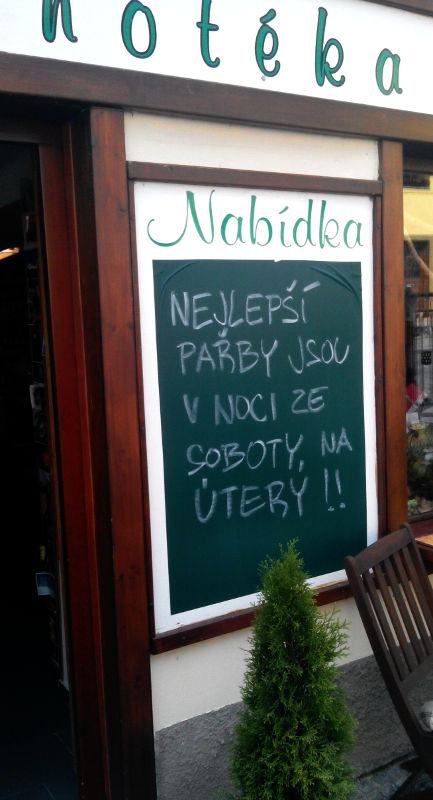 notéka
Nabídka
NEJLEPŠÍ
PAŘBY JSOU
V NOCI ZE
SOBOTY, NA
ÚTERÝ !!